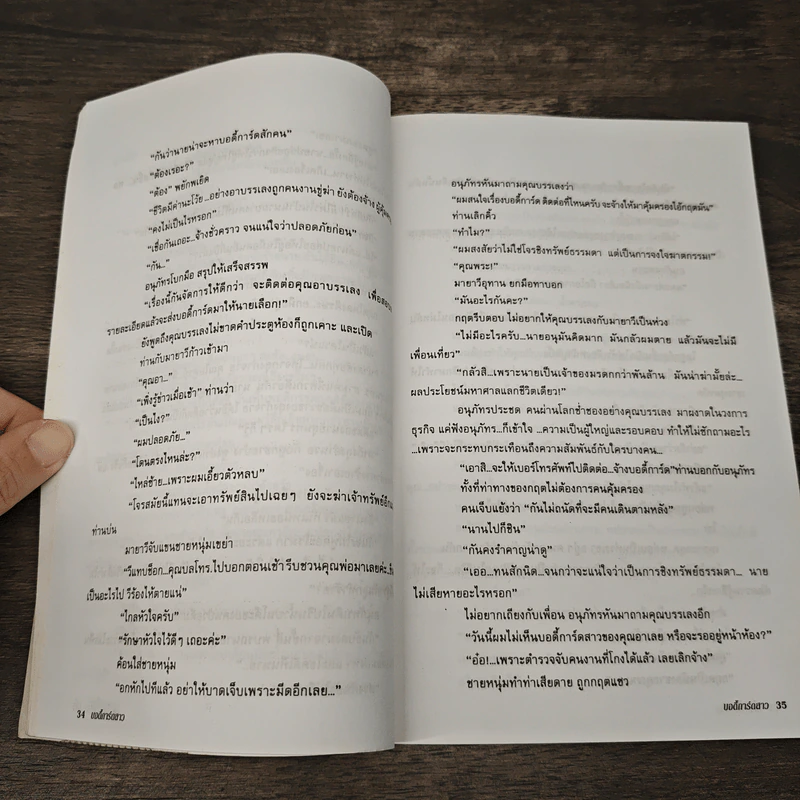 “กันว่านายน่าจะหาบอดี้การ์ดสักคน”
“ต้องเรอะ?”
“ต้อง” พยักพเยิด
“ชีวิตมีค่านะโว้ย...อย่างอาบรรเลงถูกคนงานขู่ฆ่า ยังต้องจ้าง
“คงไม่เป็นไรหรอก”
“เชื่อกันเถอะ...จ้างชั่วคราว จนแน่ใจว่าปลอดภัยก่อน”
“กัน...”
อนุภัทรโบกมือ สรุปให้เสร็จสรรพ
“เรื่องนี้กันจัดการให้ดีกว่า จะติดต่อคุณอาบรรเลง เพื่อ
รายละเอียดแล้วจะส่งบอดี้การ์ดมาให้นายเลือก!”
ยังพูดถึงคุณบรรเลงไม่ขาดคำประตูห้องก็ถูกเคาะ และเปิด
ท่านกับมายาวีก้าวเข้ามา
“คุณอา...”
“เพิ่งรู้ข่าวเมื่อเช้า” ท่านว่า
“เป็นไง?”
“ผมปลอดภัย...”
“โดนตรงไหนล่ะ?”
“ไหล่ซ้าย...เพราะผมเอี้ยวตัวหลบ”
“โจรสมัยนี้แทนจะเอาทรัพย์สินไปเฉยๆ ยังจะฆ่าเจ้าทรัพย์อีก
ท่านบ่น
มายาวีจับแขนชายหนุ่มเขย่า
“วีแทบช็อก...คุณบลโทร.ไปบอกตอนเช้า รีบชวนคุณพ่อมาเลยค่ะ...
เป็นอะไรไป วีร้องไห้ตายแน่”
“ไกลหัวใจครับ”
“รักษาหัวใจไว้ดีๆ เถอะค่ะ”
ค้อนใส่ชายหนุ่ม
“อกหักไปทีแล้ว อย่าให้บาดเจ็บเพราะมีดอีกเลย...”
34 บอดี้การ์ดสาว
อนุภัทรหันมาถามคุณบรรเลงว่า
“ผมสนใจเรื่องบอดี้การ์ด ติดต่อที่ไหนครับ จะจ้างให้มาคุ้มครองไอ้กฤตมัน”
ท่านเลิกคิ้ว
“ทำไม?”
“ผมสงสัยว่าไม่ใช่โจรชิงทรัพย์ธรรมดา แต่เป็นการจงใจฆาตกรรม!”
“คุณพระ!”
มายาวีอุทาน ยกมือทาบอก
“มันอะไรกันคะ?”
กฤตรีบตอบ ไม่อยากให้คุณบรรเลงกับมายาวีเป็นห่วง
“ไม่มีอะไรครับ...นายอนุมันคิดมาก มันกลัวผมตาย แล้วมันจะไม่มี
เพื่อนเที่ยว”
“กลัวสิ...เพราะนายเป็นเจ้าของมรดกกว่าพันล้าน มันน่าฆ่ามั้ยล่ะ...
ผลประโยชน์มหาศาลแลกชีวิตเดียว!”
อนุภัทรประชด คนผ่านโลกช่ำชองอย่างคุณบรรเลง มาผงาดในวงการ
ธุรกิจ แค่ฟังอนุภัทร...ก็เข้าใจ ...ความเป็นผู้ใหญ่และรอบคอบ ทำให้ไม่ซักถามอะไร
...เพราะจะกระทบกระเทือนถึงความสัมพันธ์กับใครบางคน...
“เอาสิ...จะให้เบอร์โทรศัพท์ไปติดต่อ...จ้างบอดี้การ์ด”ท่านบอกกับอนุภัทร
ทั้งที่ท่าทางของกฤตไม่ต้องการคนคุ้มครอง
คนเจ็บแย้งว่า “กันไม่ถนัดที่จะมีคนเดินตามหลัง”
“นานไปก็ชิน”
“กันคงรำคาญน่าดู”
“เออ...ทนสักนิด...จนกว่าจะแน่ใจว่าเป็นการชิงทรัพย์ธรรมดา... นาย
ไม่เสียหายอะไรหรอก”
ไม่อยากเถียงกับเพื่อน อนุภัทรหันมาถามคุณบรรเลงอีก
“วันนี้ผมไม่เห็นบอดี้การ์ดสาวของคุณอาเลย หรือจะรออยู่หน้าห้อง?”
“อ๋อ!...เพราะตำรวจจับคนงานที่โกงได้แล้ว เลยเลิกจ้าง”
ชายหนุ่มทำท่าเสียดาย ถูกกฤตแซว
บอดี้การ์ดสาว 35